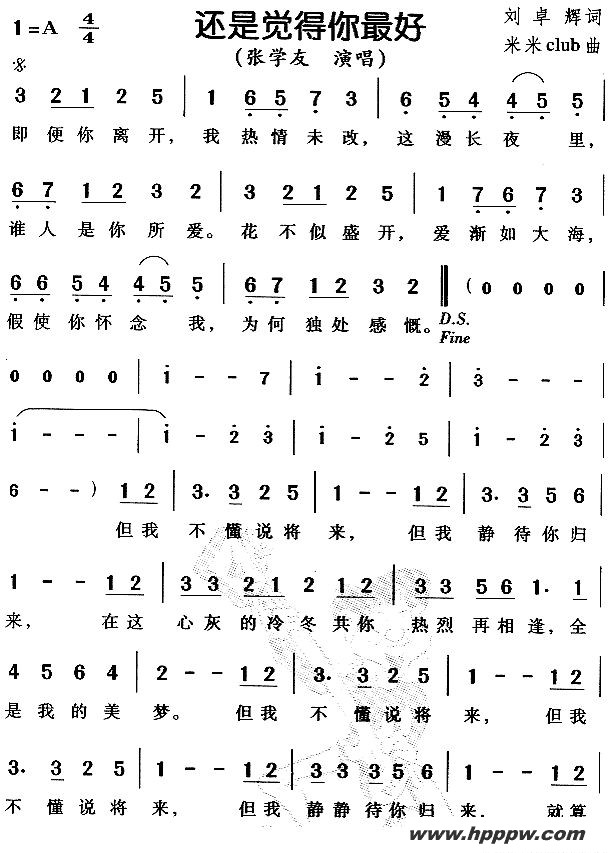 还是觉得你最好
1=A 4/4
(张学友 演唱)
刘卓辉 词
米米club 曲
3 2 1 2 5 | 1 6 5 7 3 | 6 5 4 4 5 5 |
即便你离开，我热情未改，这漫长夜里，
6 7 1 2 3 2 | 3 2 1 2 5 | 1 7 6 7 3 |
谁人是你所爱。花不似盛开，爱渐如大海，
6 6 5 4 4 5 5 | 6 7 1 2 3 2 ‖ (0 0 0 0 |
假使你怀念我，为何独处感慨。D.S.
Fine
0 0 0 0 | i - - 7 | i - - 2 | 3 - - - |
i - - - | i - 2 3 | i - 2 5 | i - 2 3 |
6 - -) 1 2 | 3. 3 2 5 | 1 - - 1 2 | 3. 3 5 6 |
但我不懂说将来，但我静待你归
1 - - 1 2 | 3 3 2 1 2 1 2 | 3 3 5 6 1. 1 |
来，在这心灰的冷冬共你热烈再相逢，全
4 5 6 4 | 2 - - 1 2 | 3. 3 2 5 | 1 - - 1 2 |
是我的美梦。但我不懂说将来，但我
3. 3 2 5 | 1 - - 1 2 | 3 3 5 6 1 - 1 2 |
不懂说将来，但我静静待你归来，就算
www.hpppw.com